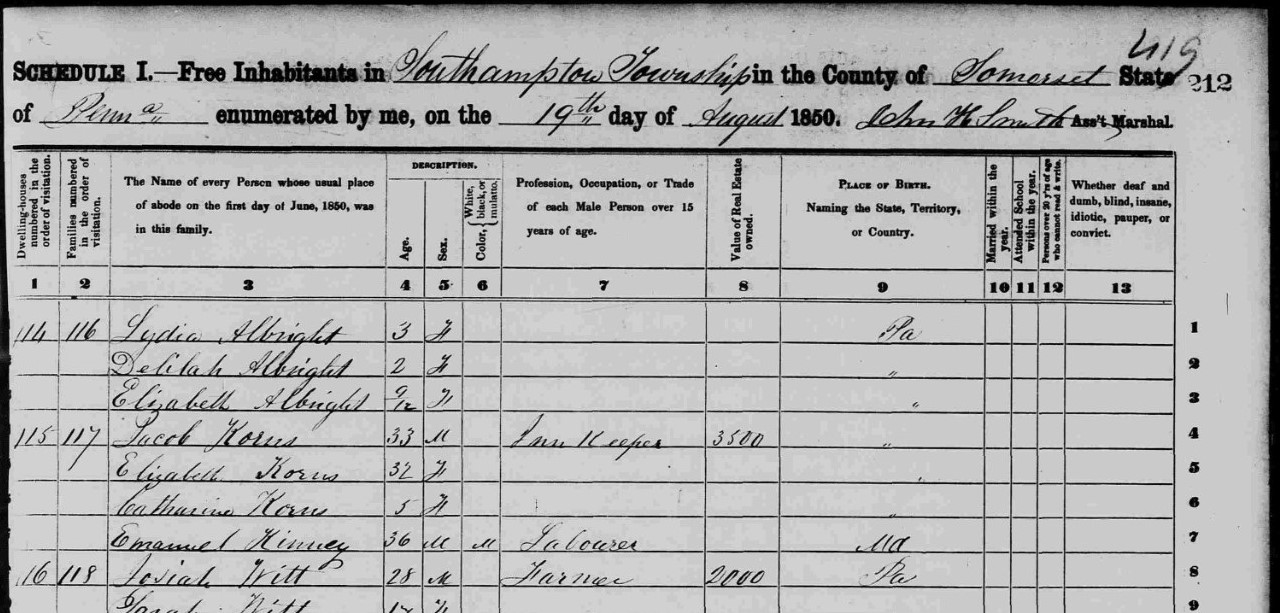 419
SCHEDULE I.—Free Inhabitants in Southampton Township in the County of Somerset State 212
of Penna enumerated by me, on the 19th day of August 1850. John H Smith Ass't Marshal.
Dwelling-houses numbered in the order of visitation.
Families numbered in the order of visitation.
The Name of every Person whose usual place of abode on the first day of June, 1850, was in this family.
DESCRIPTION.
Age.
Sex.
Color, { White, black, or mulatto.
Profession, Occupation, or Trade of each Male Person over 15 years of age.
Value of Real Estate owned.
PLACE OF BIRTH. Naming the State, Territory, or Country.
Married within the year.
Attended School within the year.
Persons over 20 y'rs of age who cannot read & write.
Whether deaf and dumb, blind, insane, idiotic, pauper, or convict.
1 2 3 4 5 6 7 8 9 10 11 12 13
114 116 Lydia Albright 3 F Pa 1
Delilah Albright 2 F " 2
Elizabeth Albright 9/12 F " 3
115 117 Jacob Korns 33 M Inn Keeper 3500 " 4
Elizabeth Korns 32 F " 5
Catharine Korns 5 F " 6
Emanuel Kinney 36 M M Labourer Md 7
116 118 Josiah Witt 28 M Farmer 2000 Pa 8
Sarah Witt 17 F 9